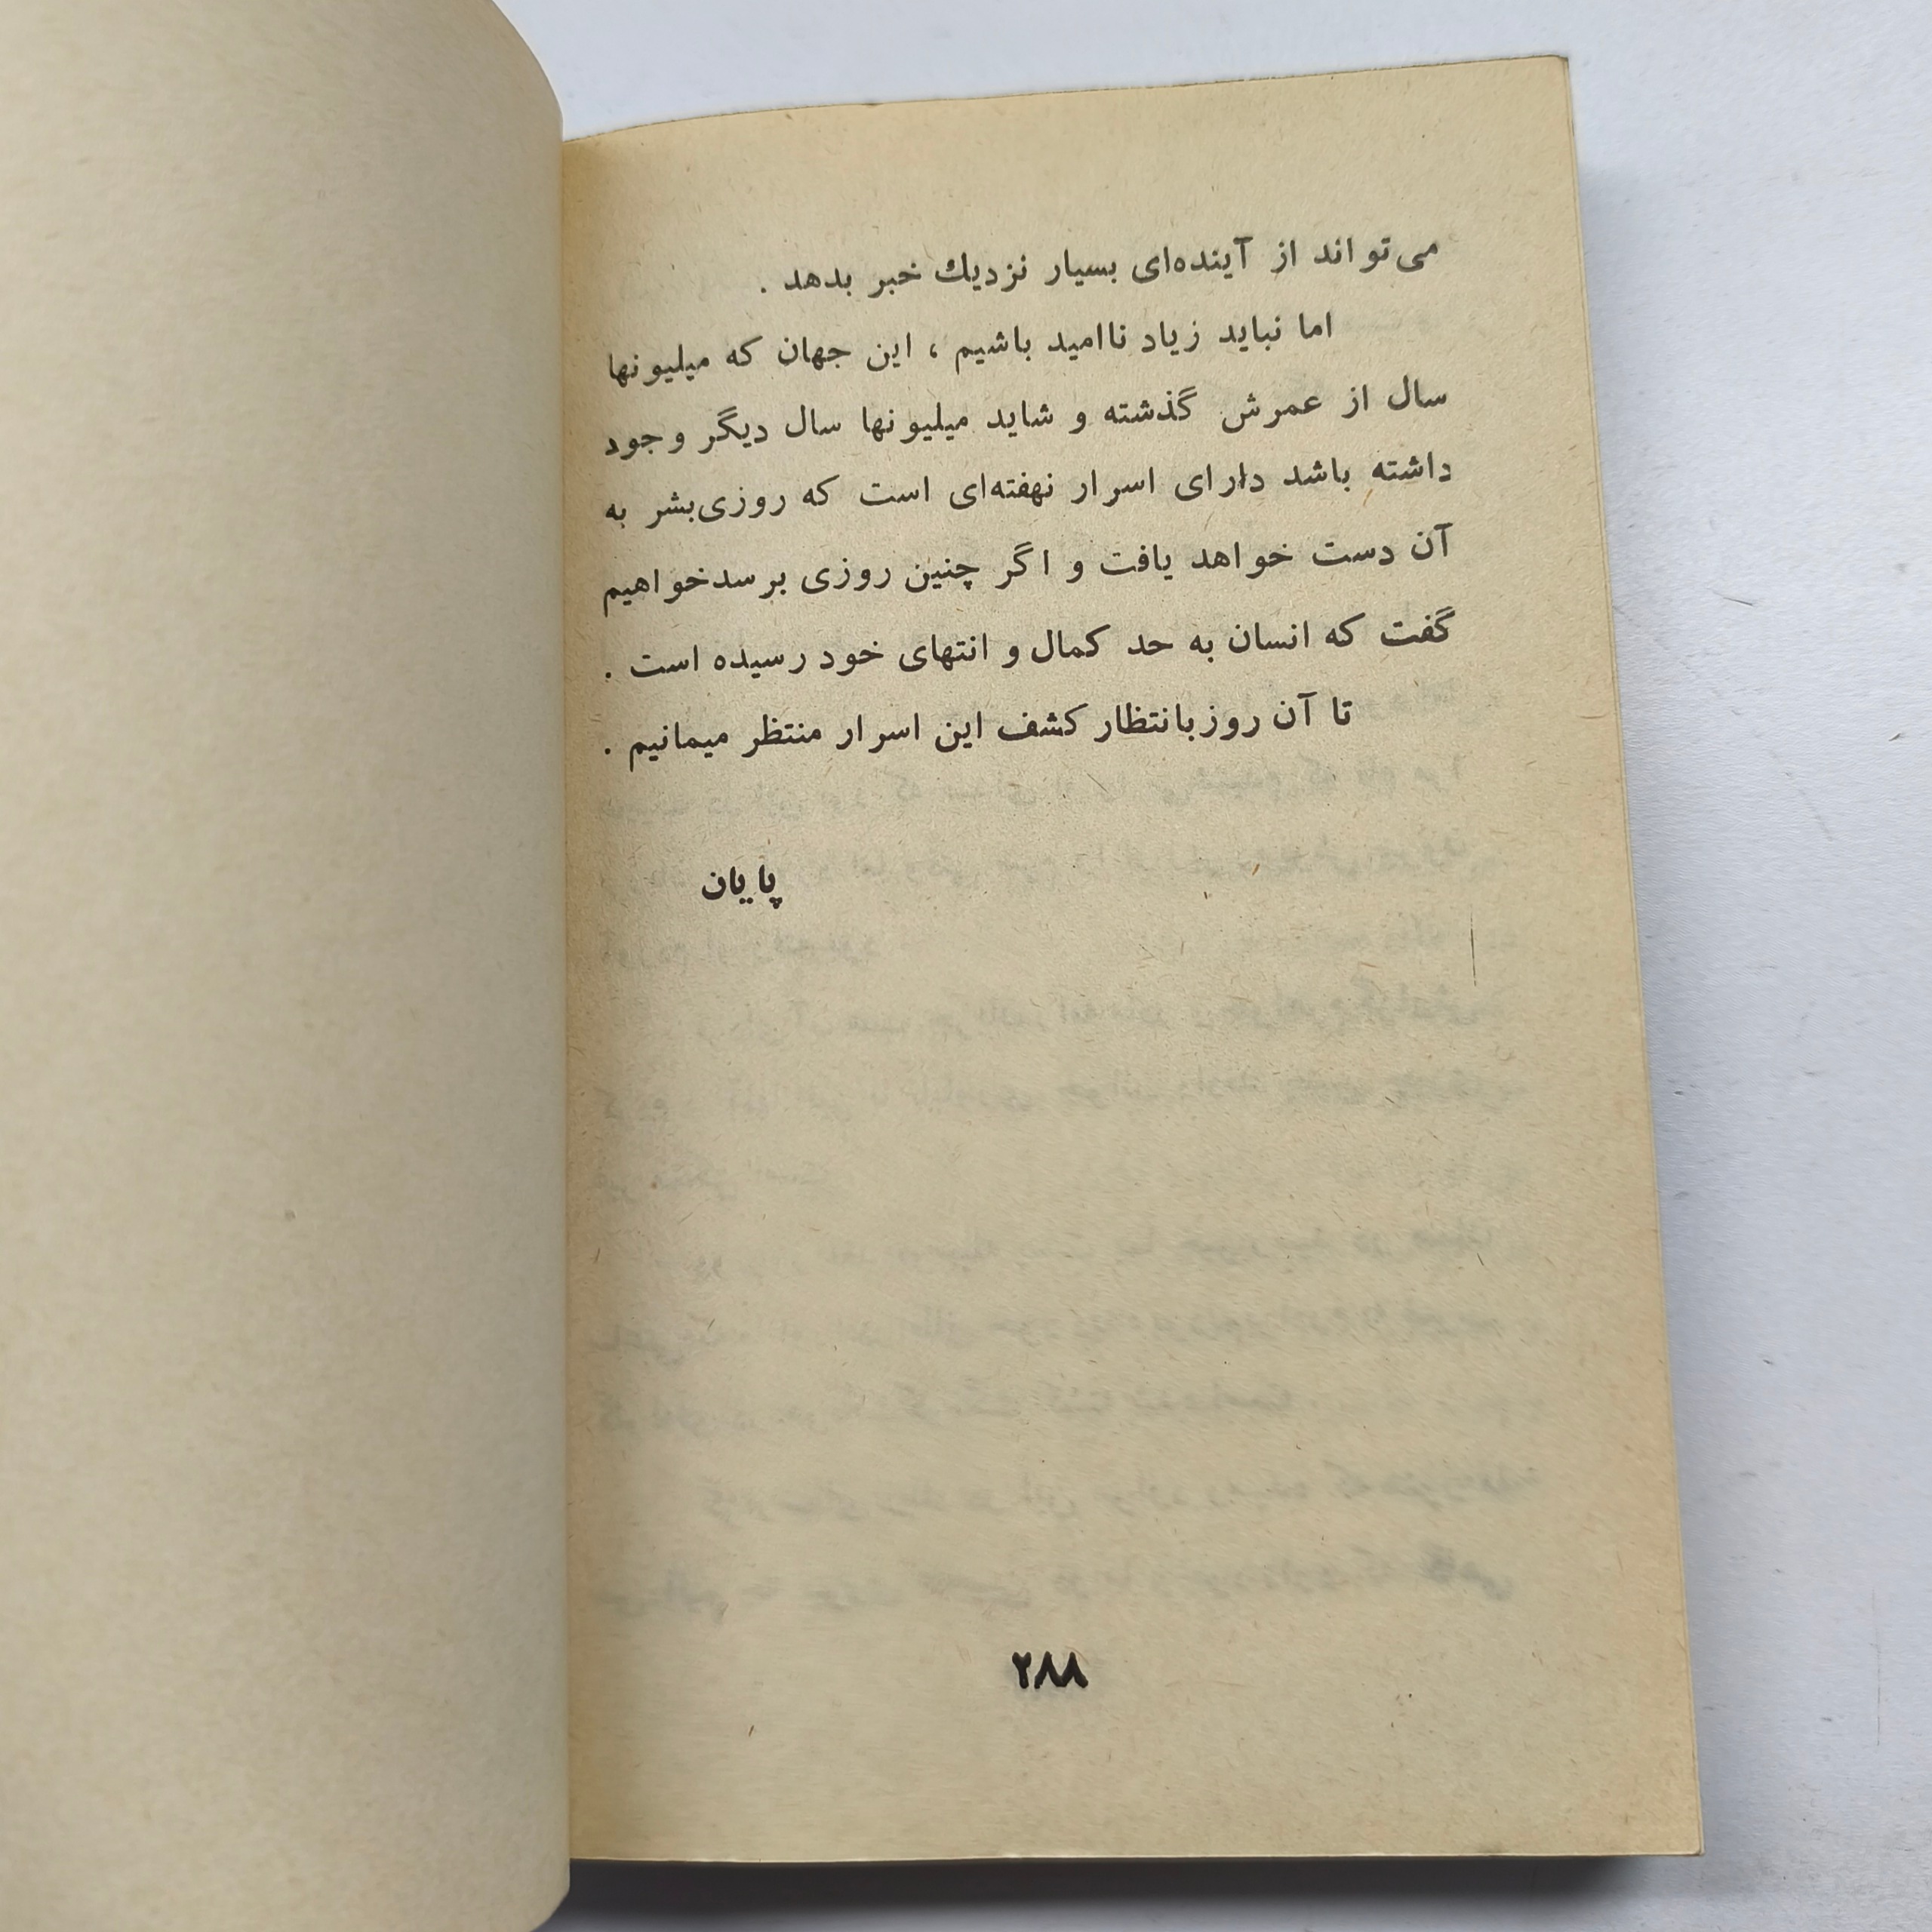 می‌تواند از آینده‌ای بسیار نزدیك خبر بدهد .
اما نباید زیاد ناامید باشیم ، این جهان که میلیونها
سال از عمرش گذشته و شاید میلیونها سال دیگر وجود
داشته باشد دارای اسرار نهفته‌ای است که روزی‌بشر به
آن دست خواهد یافت و اگر چنین روزی برسدخواهیم
گفت که انسان به حد کمال و انتهای خود رسیده است .
تا آن روزبانتظار کشف این اسرار منتظر میمانیم .
پایان
۲۸۸